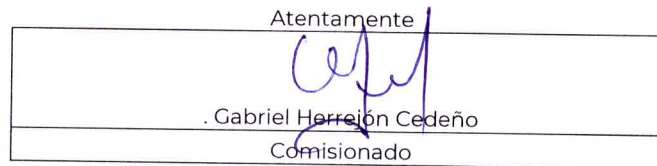 Atentamente
. Gabriel Herrejón Cedeño
Comisionado